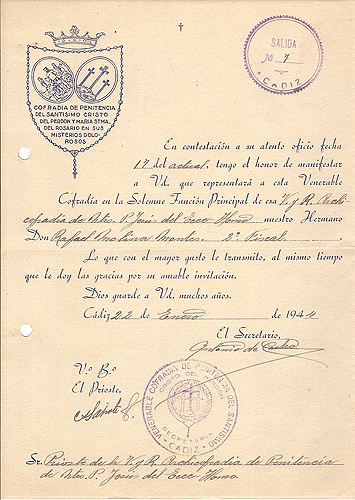 SALIDA
No 7
CADIZ
COFRADIA DE PENITENCIA
DEL SANTISIMO CRISTO
DEL PERDON Y MARIA STMA.
DEL ROSARIO EN SUS
MISTERIOS DOLO-
ROSOS
En contestación a su atento oficio fecha
17 del actual, tengo el honor de manifestar
a Vd. que representará a esta Venerable
Cofradía en la Solemne Función Principal de esa V. y R. Archi-
cofradia de Ntro. P. Jesús del Ecce-Homo nuestro Hermano
Don Rafael Molina Montes. 2º Fiscal.
Lo que con el mayor gusto le transmito, al mismo tiempo
que le doy las gracias por su amable invitación.
Dios guarde a Vd. muchos años.
Cádiz 22 de Enero de 1944
El Secretario,
Antonio de Castro
V.º B.º
El Prioste,
VENERABLE COFRADIA DE PENITENCIA DEL SANTISIMO
CRISTO DEL PERDON
SECRETARIA
CADIZ
Sr. Prioste de la V. y R. Archicofradia de Penitencia
de Ntro. P. Jesús del Ecce Homo.